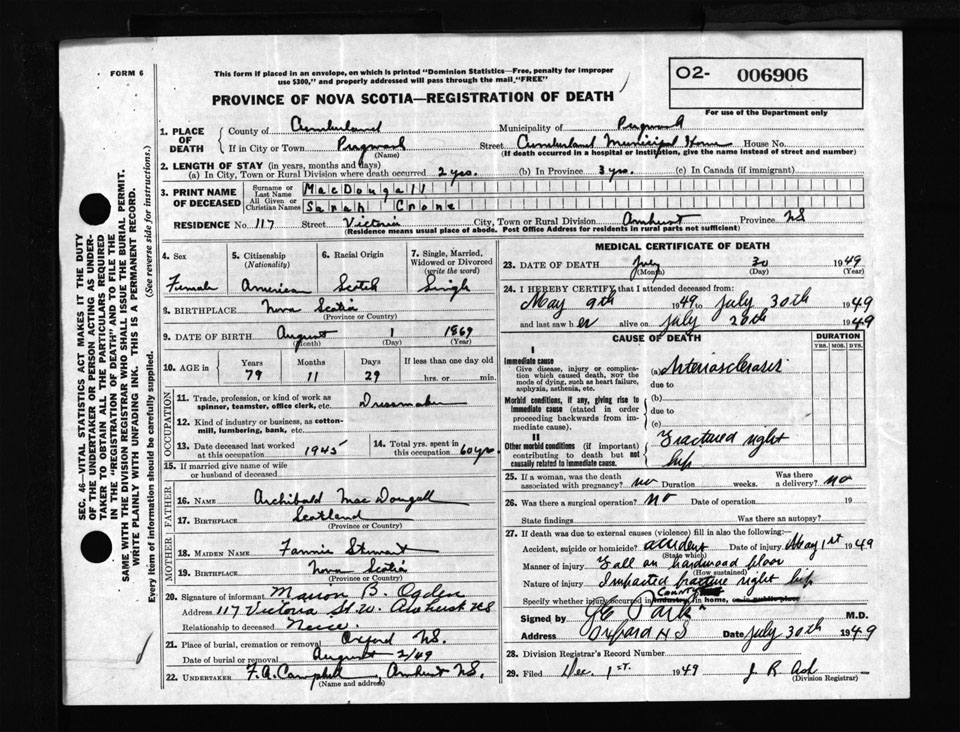 FORM 6
This form if placed in an envelope, on which is printed "Dominion Statistics—Free, penalty for improper
use $300," and properly addressed will pass through the mail, "FREE"
O2- 006906
PROVINCE OF NOVA SCOTIA—REGISTRATION OF DEATH
For use of the Department only
1. PLACE OF DEATH
County of Cumberland Municipality of Pugwash
If in City or Town Pugwash Street Cumberland Municipal Home House No.
(Name) (If death occurred in a hospital or institution, give the name instead of street and number)
2. LENGTH OF STAY (in years, months and days)
(a) In City, Town or Rural Division where death occurred 2 yrs. (b) In Province 3 yrs. (c) In Canada (if immigrant)
3. PRINT NAME OF DECEASED
Surname or Last Name MacDougall
All Given or Christian Names Sarah Crone
RESIDENCE No. 117 Street Victoria City, Town or Rural Division Amherst Province NS
(Residence means usual place of abode. Post Office Address for residents in rural parts not sufficient)
4. Sex
Female
5. Citizenship
(Nationality)
American
6. Racial Origin
Scotch
7. Single, Married,
Widowed or Divorced
(write the word)
Single
8. BIRTHPLACE Nova Scotia
(Province or Country)
9. DATE OF BIRTH August 1 1869
(Month) (Day) (Year)
10. AGE in Years Months Days If less than one day old
79 11 29 hrs. or min.
OCCUPATION
11. Trade, profession or kind of work as
spinner, teamster, office clerk, etc. Dressmaker
12. Kind of industry or business, as cotton-
mill, lumbering, bank, etc.
13. Date deceased last worked
at this occupation 1945
14. Total yrs. spent in
this occupation 60 yrs.
15. If married give name of wife
or husband of deceased
FATHER
16. NAME Archibald MacDougall
17. BIRTHPLACE Scotland
(Province or Country)
MOTHER
18. MAIDEN NAME Fannie Stewart
19. BIRTHPLACE Nova Scotia
(Province or Country)
20. Signature of informant Marion B. Ogden
Address 117 Victoria St. W. Amherst NS
Relationship to deceased Neice
21. Place of burial, cremation or removal Oxford NS.
Date of burial or removal August 2/49
22. UNDERTAKER F. A. Campbell, Amherst NS.
(Name and address)
MEDICAL CERTIFICATE OF DEATH
23. DATE OF DEATH July 30 1949
(Month) (Day) (Year)
24. I HEREBY CERTIFY that I attended deceased from:
May 9th 1949 to July 30th 1949
and last saw her alive on July 28th 1949
CAUSE OF DEATH
DURATION
YRS. MOS. DYS.
I
Immediate cause
Give disease, injury or complica-
tion which caused death, NOT the
mode of dying, such as heart failure,
asphyxia, asthenia, etc.
(a) Arteriosclerosis
due to
Morbid conditions, if any, giving rise to
immediate cause (stated in order
proceeding backwards from im-
mediate cause).
(b)
due to
(c)
II
Other morbid conditions (if important)
contributing to death but not
causally related to immediate cause.
Fractured right
hip
25. If a woman, was the death
associated with pregnancy? no Duration weeks. Was there
a delivery? no
26. Was there a surgical operation? no Date of operation 19
State findings Was there an autopsy?
27. If death was due to external causes (violence) fill in also the following:
Accident, suicide or homicide? accident Date of injury May 1st 1949
(State which)
Manner of injury Fall on hardwood floor
(How sustained)
Nature of injury Impacted fracture right hip
COUNTY
Specify whether injury occurred in industry, in home, or in public place
Signed by M.D.
Address Oxford N S Date July 30th 1949
28. Division Registrar's Record Number
29. Filed Dec. 1st. 1949
(Division Registrar)
SEC. 46—VITAL STATISTICS ACT MAKES IT THE DUTY
OF THE UNDERTAKER OR PERSON ACTING AS UNDER-
TAKER TO OBTAIN ALL THE PARTICULARS REQUIRED
IN THE "REGISTRATION OF DEATH" AND TO FILE THE
SAME WITH THE DIVISION REGISTRAR WHO SHALL ISSUE THE BURIAL PERMIT.
WRITE PLAINLY WITH UNFADING INK. THIS IS A PERMANENT RECORD.
Every item of information should be carefully supplied. (See reverse side for instructions.)